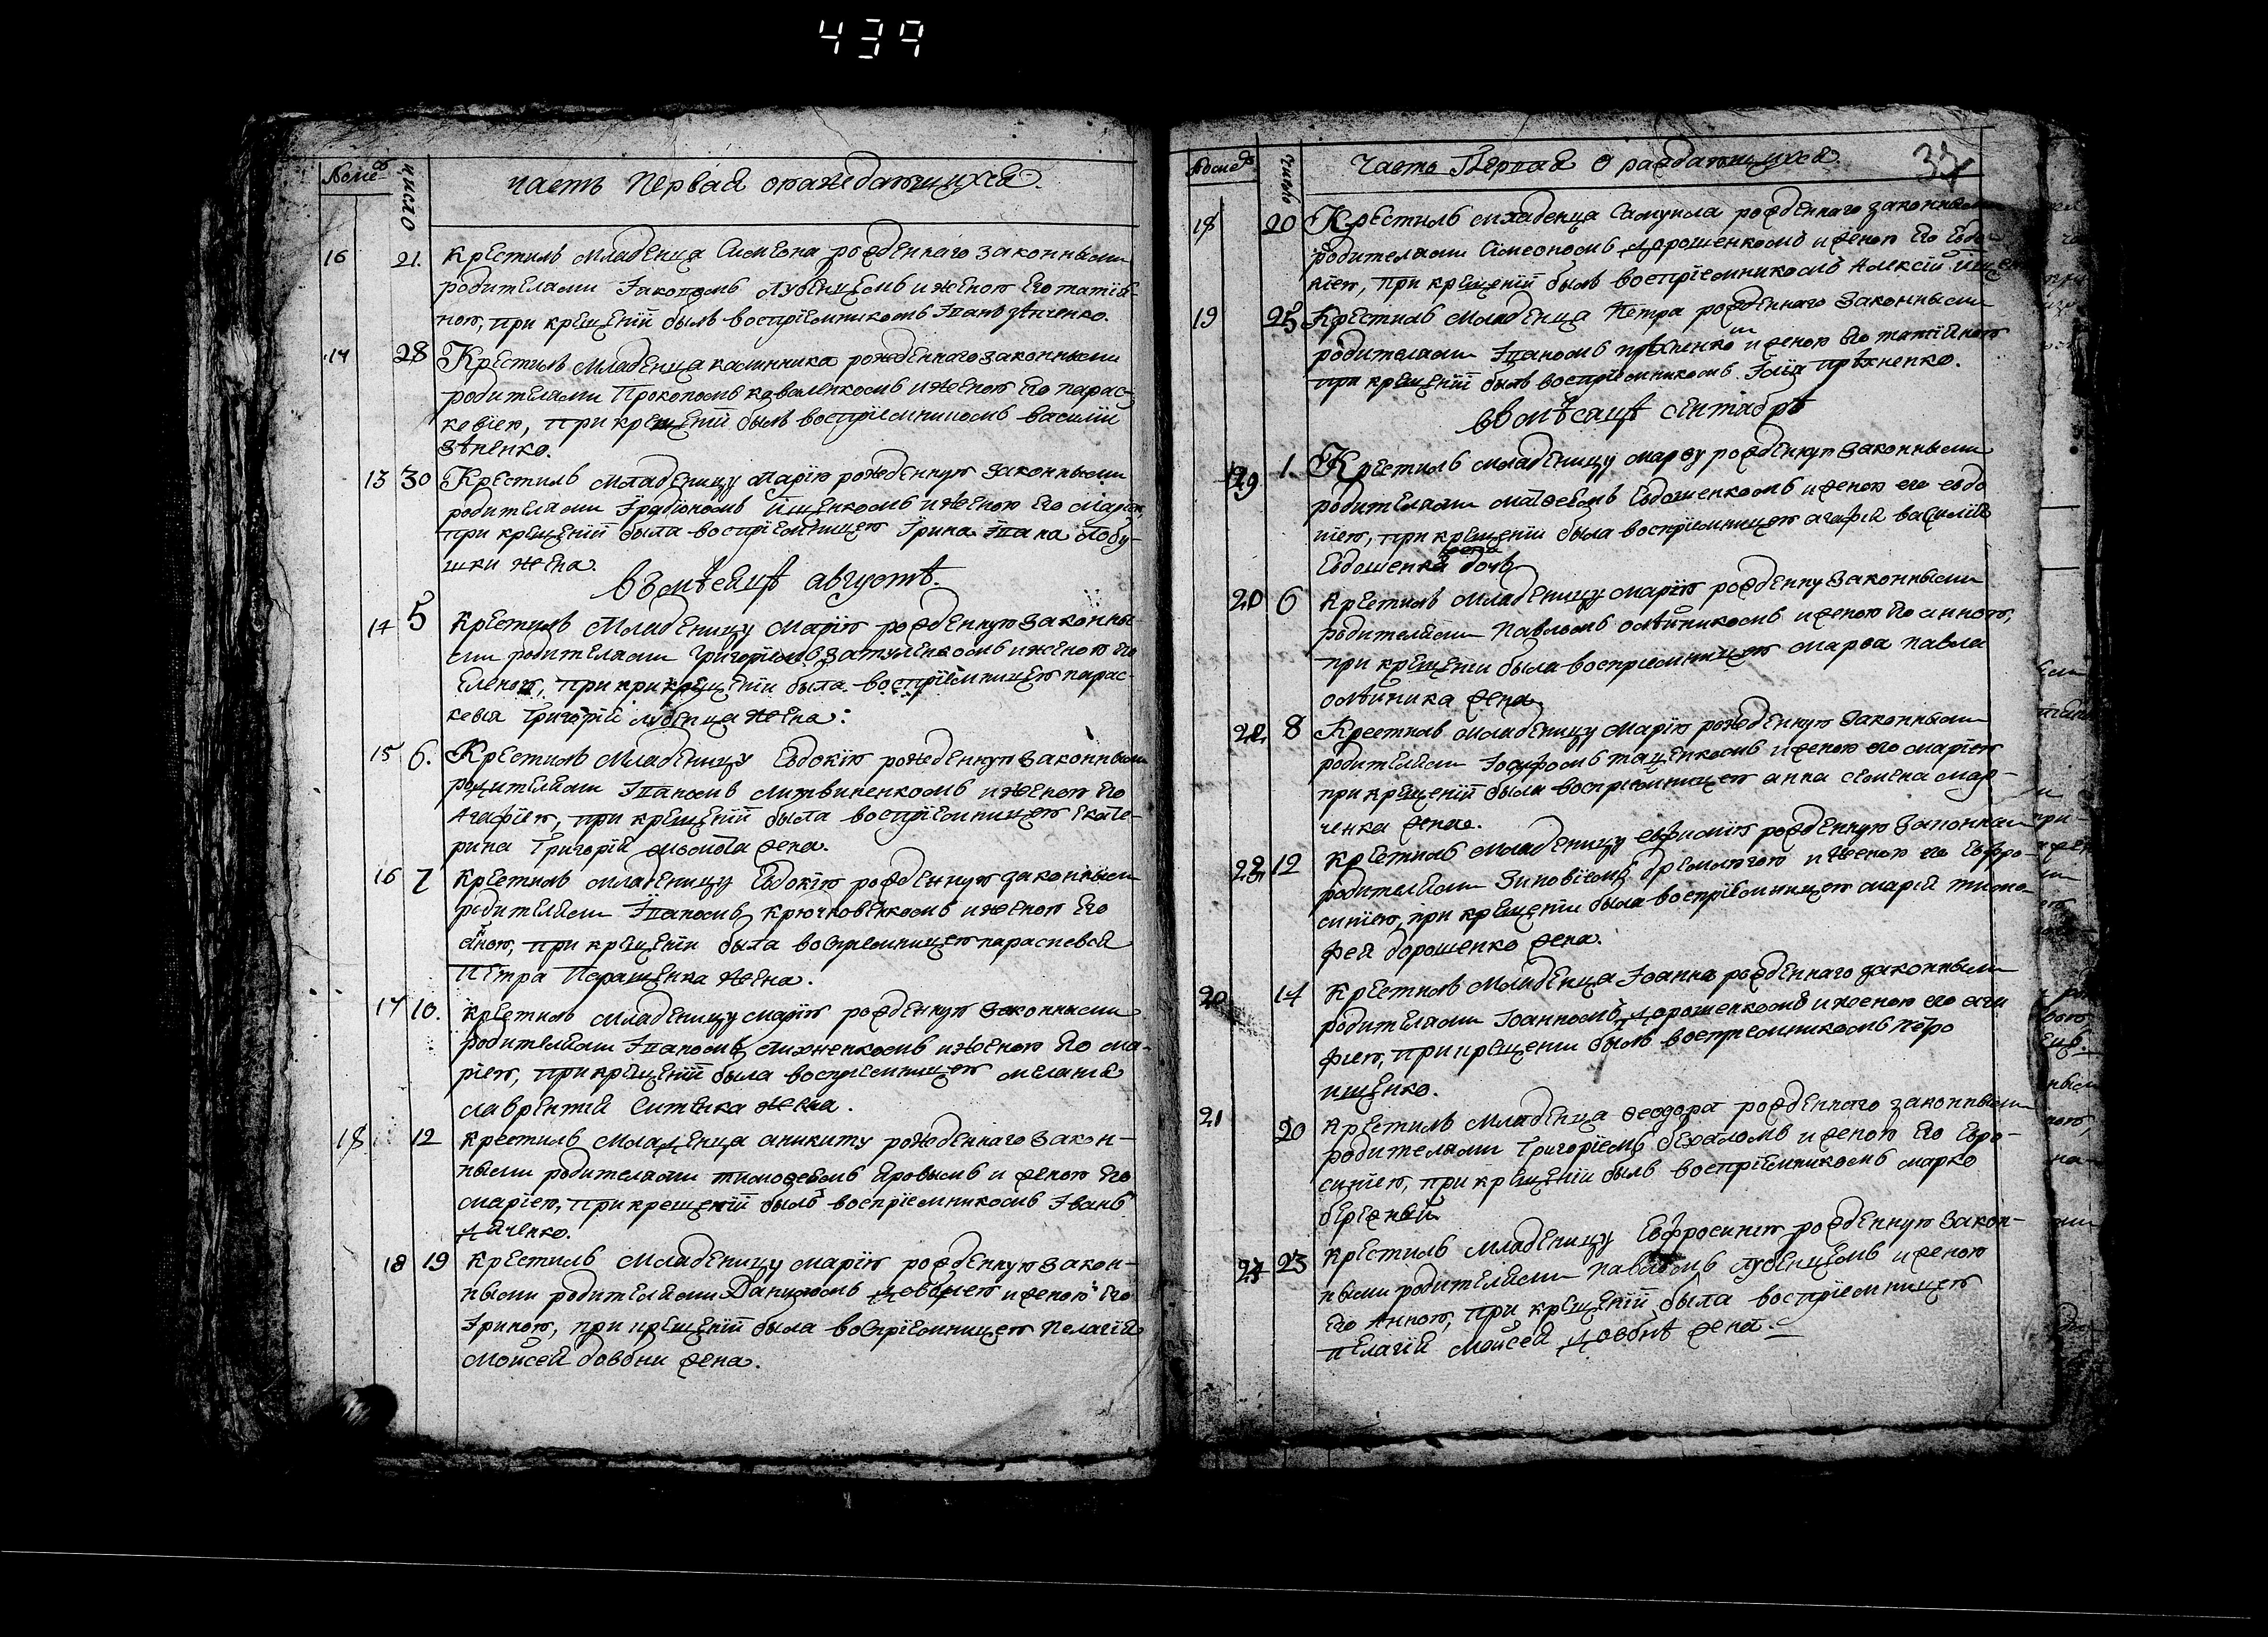 439
Комес число часть первая ораждающихся.
16 21. Крестилъ младенца Симеона рожденнаго законными
родителями Іаковомъ Лубенцемъ и женою его татія-
ною, при крещеніи былъ воспріемникомъ Іванъ
17 28 Крестилъ младенца калинника рожденнаго законными
родителями Прокопомъ коваленкомъ и женою его парас-
ковіею, при крещеніи былъ воспріемникомъ василій
зѣненко.
13 30 Крестилъ младеницу марію рожденную законными
родителями Ірадіономъ Ищенкомъ и женою его маріею,
при крещеніи была воспріемницею Ірина Івана лобу-
шки жена.
въ мѣсецѣ августѣ.
14 5 Крестилъ младеницу марію рожденную законны
ми родителями григоріемъ затуленкомъ и женою его
еленою, при при крещеніи была воспріемницею парас-
кевія григорій лубенца жена:
15 6. Крестилъ младеницу Евдокію рожденную законными
родителями Іваномъ литвиненкомъ и женою его
Агафіею, при крещеніи была воспріемницею екате-
рина григорій жена.
16 7 Крестилъ младеницу Евдокію рожденную законными
родителями Іваномъ крючковенкомъ и женою его
анною, при крещеніи была воспріемницею параскевія
петра Перащенка жена.
17 10. Крестилъ младеницу марію рожденную законными
родителями Іваномъ лихненкомъ и женою его ма-
ріею, при крещеніи была воспріемницею меланія
лаврентій Ситенка жена.
18 12 Крестилъ младенца аникиту рожденнаго закон-
ными родителями тимофеемъ Яровымъ и женою его
маріею, при крещеніи былъ воспріемникомъ Іванъ
дяченко.
18 19 Крестилъ младеницу марію рожденную закон-
ными родителями Даниломъ довбнею и женою его
Іриною, при крещеніи была воспріемницею пелагія
моисей довбни жена.
Комес число Часть Первая о раждающихся. 33
18 20 Крестилъ младенца Самуила рожденнаго законными
родителями Симеономъ дорошенкомъ и женою его Евдо
кіею, при крещеніи былъ воспріемникомъ Алексій
19 25 Крестилъ младенца Петра рожденнаго законными
родителями Іваномъ и женою его татіяною
при крещеніи былъ воспріемникомъ Ілія
въ мѣсацѣ сентабрѣ
19 1. Крестилъ младеницу марѳу рожденную законными
родителями матѳеемъ Евдошенкомъ и женою его евдо
кіею, при крещеніи была воспріемницею агафія василія
Евдошенка дочь
20 6 Крестилъ младеницу марію рожденну законными
родителями павломъ олѣйникомъ и женою его анною,
при крещеніи была воспріемницею марѳа павла
олѣйника жена.
22 8 Крестилъ младеницу марію рожденную законными
родителями Іосифомъ таценкомъ и женою его маріею
при крещеніи была воспріемницею анна семена мар-
ченка жена.
23 12 Крестилъ младеницу евфимію рожденную законными
родителями Зиновіемъ дремлюгою и женою его Евфро-
синіею, при крещеніи была воспріемницею марія тимо-
фей дорошенко жена.
20 14 Крестилъ младенца Іоанна рожденнаго законными
родителями Іоанномъ дорошенкомъ и женою его ага
фіею, при крещеніи былъ воспріемникомъ петро
ищенко.
21 20 Крестилъ младенца ѳеодора рожденнаго законными
родителями григоріемъ бехаломъ и женою его Евро-
синіею, при крещеніи былъ воспріемникомъ марко
бережный.
24 23 Крестилъ младеницу Евфросинію рожденную закон-
ными родителями павломъ лубенцемъ и женою
его Анною, при крещеніи была воспріемницею
пелагія моисей довбнѣ жена.